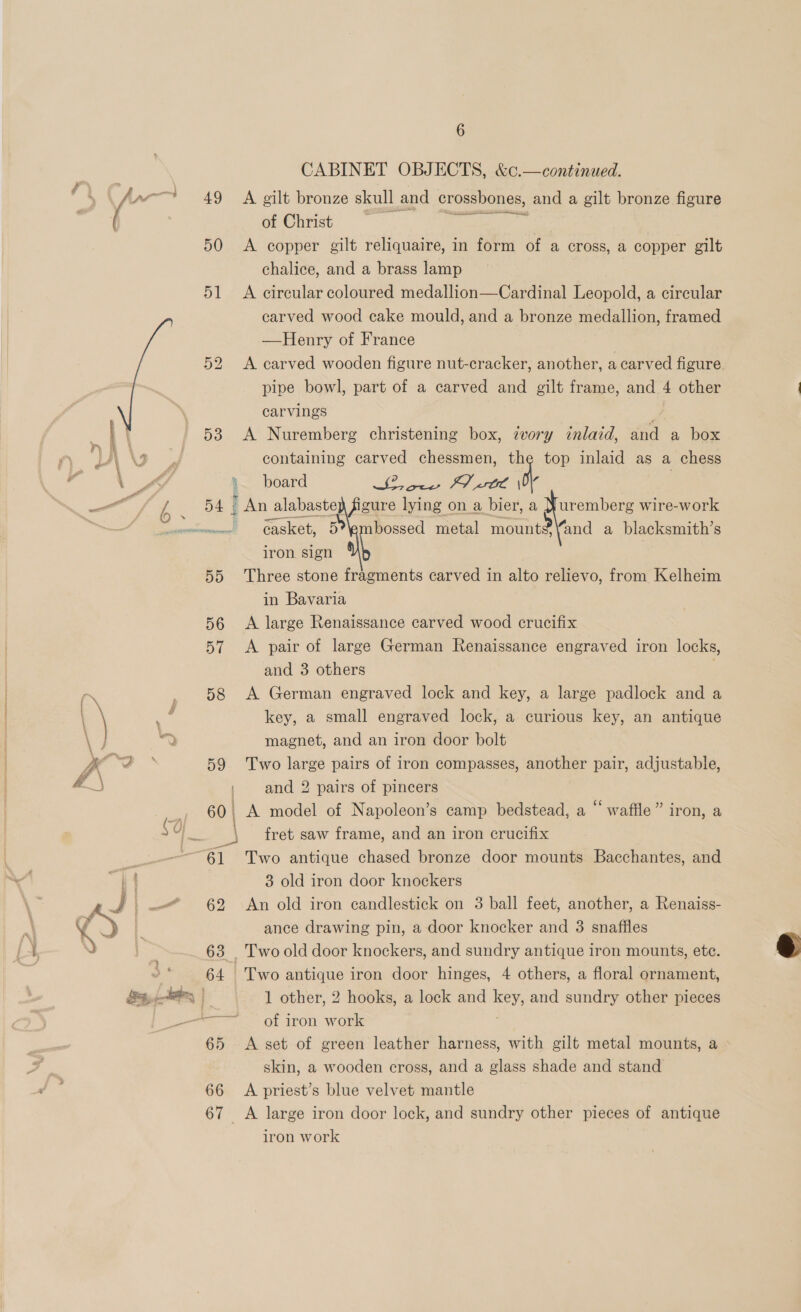 6
CABINET OBJECTS, &c.—continued.
49 A gilt bronze skull and crossbones, and a gilt bronze figure
of Christ
50 A copper gilt reliquaire, in form of a cross, a copper gilt
chalice, and a brass lamp
51 A circular coloured medallion—Cardinal Leopold, a circular
carved wood cake mould, and a bronze medallion, framed
—Henry of France
52 A carved wooden figure nut-cracker, another, a carved figure
pipe bowl, part of a carved and gilt frame, and 4 other
carvings
53 A Nuremberg christening box, ivory inlaid, and a box
containing carved chessmen, the top inlaid as a chess
board
54 An alabaster figure lying on a bier, a Nuremberg wire-work
casket, 5 embossed metal mounts, and a blacksmith's
iron sign
55 Three stone fragments carved in alto relievo, from Kelheim
in Bavaria
56 A large Renaissance carved wood crucifix
57 A pair of large German Renaissance engraved iron locks,
and 3 others
58 A German engraved lock and key, a large padlock and a
key, a small engraved lock, a curious key, an antique
magnet, and an iron door bolt
59 Two large pairs of iron compasses, another pair, adjustable,
and 2 pairs of pincers
60 A model of Napoleon's camp bedstead, a "waffle" iron, a
fret saw frame, and an iron crucifix
61 Two antique chased bronze door mounts Bacchantes, and
3 old iron door knockers
62 An old iron candlestick on 3 ball feet, another, a Renaiss-
ance drawing pin, a door knocker and 3 snaffles
63 Two old door knockers, and sundry antique iron mounts, etc.
64 Two antique iron door hinges, 4 others, a floral ornament,
1 other, 2 hooks, a lock and key, and sundry other pieces
of iron work
65 A set of green leather harness, with gilt metal mounts, a
skin, a wooden cross, and a glass shade and stand
66 A priest's blue velvet mantle
67 A large iron door lock, and sundry other pieces of antique
iron work